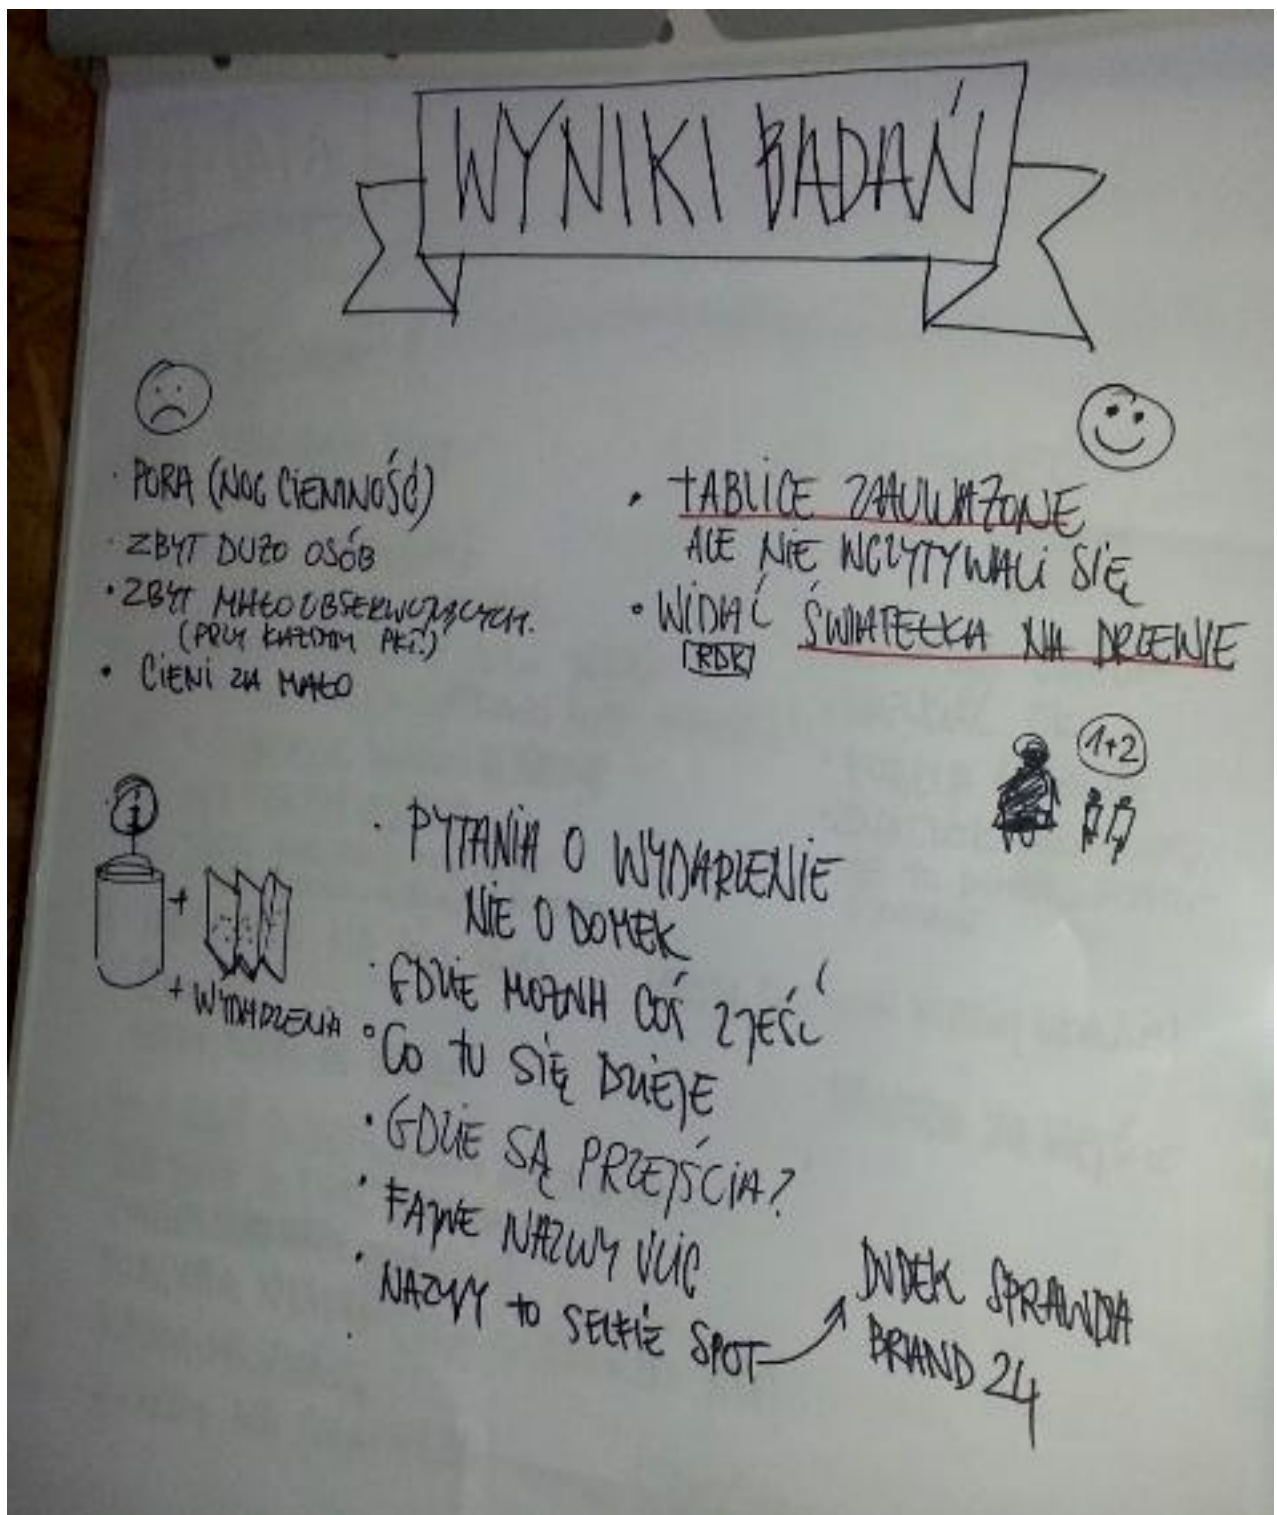 WYNIKI BADAŃ
• PORA (NOC CIEMNOŚĆ)
• ZBYT DUŻO OSÓB
• ZBYT MAŁO OBSERWUJĄCYCH.
(PRZY KAŻDYM PKT.)
• CIENI ZA MAŁO
• TABLICE ZAUWAŻONE
ALE NIE WCZYTYWALI SIĘ
• WIDAĆ ŚWIATEŁKA NA DRZEWIE
RDK
1+2
i
+
+ WYDARZENIA
• PYTANIA O WYDARZENIE
NIE O DOMEK
• GDZIE MOŻNA COŚ ZJEŚĆ
• CO TU SIĘ DZIEJE
• GDZIE SĄ PRZEJŚCIA?
• FAJNE NAZWY ULIC
• NAZWY TO SELFIE SPOT
DUDEK SPRAWDZA
BRAND 24